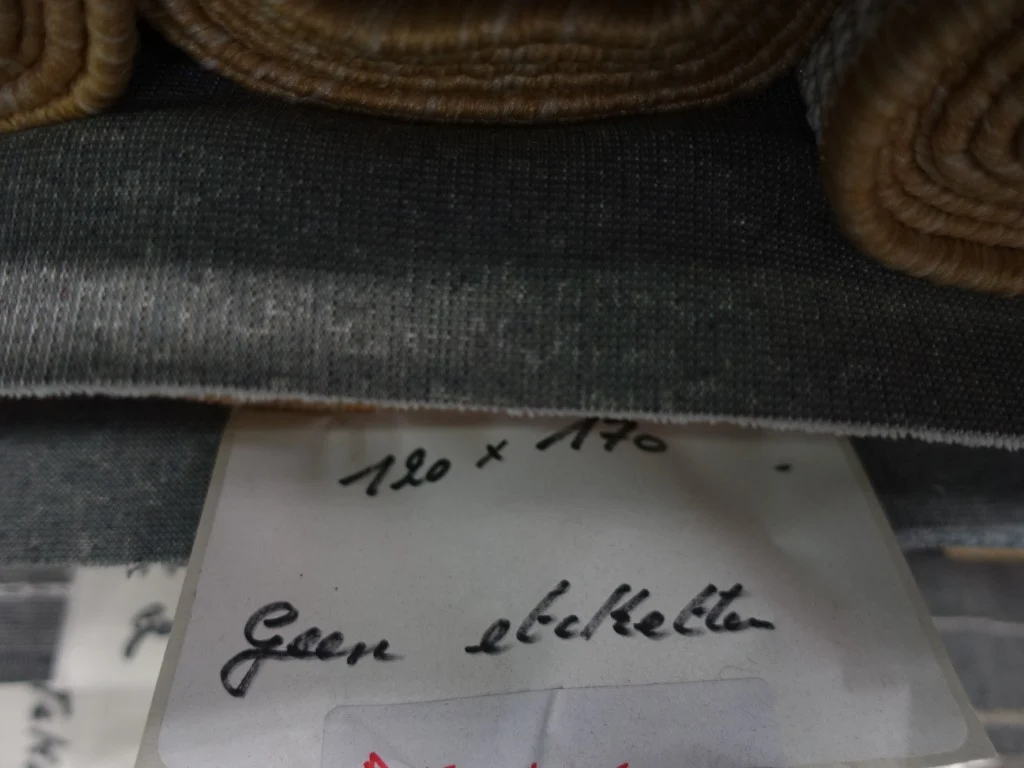 120 x 170
Geen etiketten